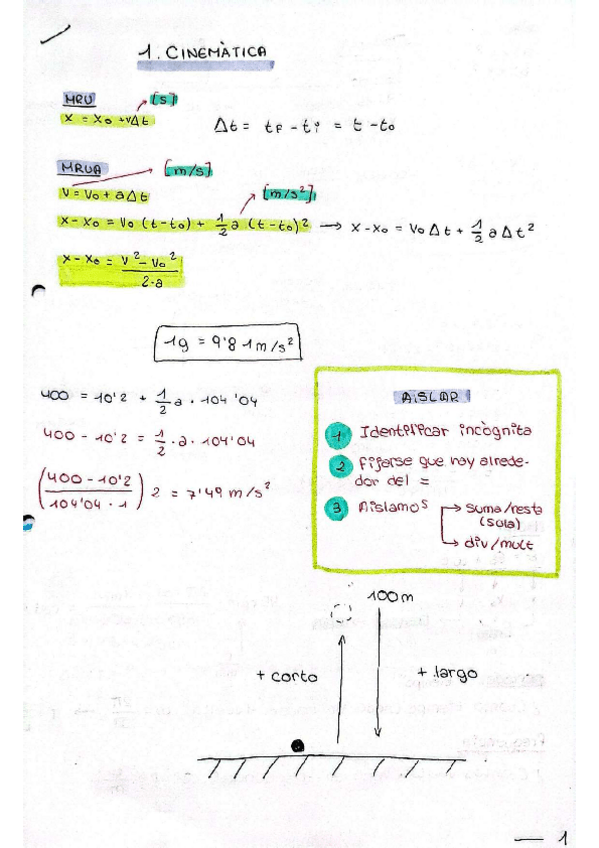 1. CINEMÀTICA
MRU
[s]
x = x₀ + vΔt
Δt = tF - ti = t - t₀
MRUA
[m/s]
v = v₀ + aΔt
[m/s²]
x - x₀ = v₀ (t - t₀) + 1/2 a (t - t₀)² → x - x₀ = v₀ Δt + 1/2 a Δt²
x - x₀ = v² - v₀² / 2·a
1g = 9'81m/s²
400 = 10'2 + 1/2 a · 104'04
400 - 10'2 = 1/2 · a · 104'04
(400 - 10'2 / 104'04 · 1) 2 = 7'49 m/s²
AISLAR
1 Identificar incògnita
2 Fijarse que hay alrede-
dor del =
3 Aislamos → suma/resta
(sola)
→ div/mult
100m
+ corto
+ largo
— 1